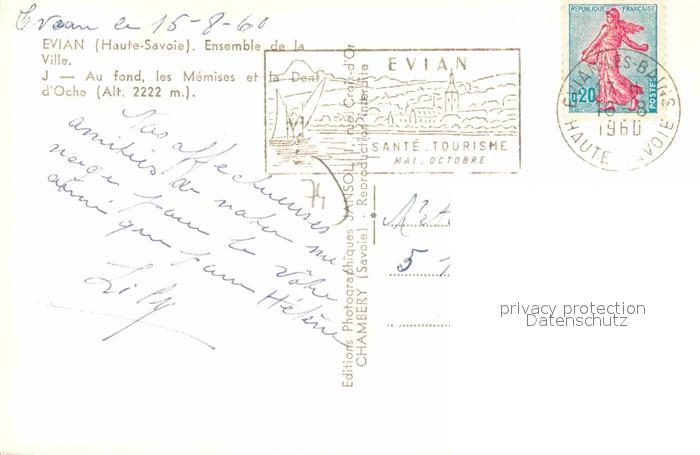 Evian le 15-8-60
EVIAN (Haute-Savoie). Ensemble de la
Ville.
J — Au fond, les Mémises et la Dent
d'Oche (Alt. 2222 m.).
Nos affectueuses
amitiés de notre
pour le vôtre
ainsi que pour Hélène
Lily
74
EVIAN
SANTÉ. TOURISME
MAI. OCTOBRE
REPUBLIQUE FRANÇAISE
0,20
POSTES
EVIAN-LES-BAINS
16-8
1960
HAUTE SAVOIE
Editions Photographiques JANSOL, Croix d'Or
CHAMBERY (Savoie) - Reproduction interdite
5
privacy protection
Datenschutz